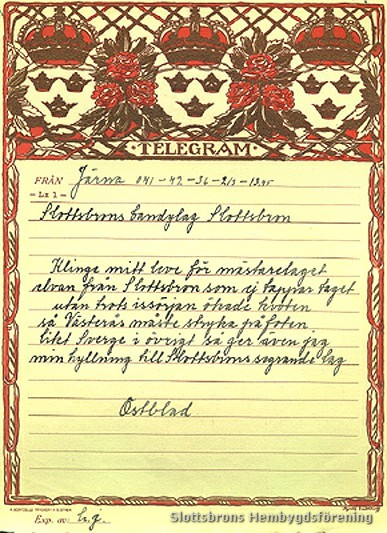 · TELEGRAM ·
FRÅN Järna 041 - 47 - 36 - 2/3 - 1345
- Lx 1 -
Slottsbrons bandylag Slottsbron
Klinge mitt leve för mästarelaget
elvan från Slottsbron som ej tappar taget
utan trots issörjan ökade kvoten
så Västerås måste stryka på foten
likt Sverge i övrigt så ger även jag
min hyllning till Slottsbrons segrande lag
Östblad
Exp. av:
Slottsbrons Hembygdsförening